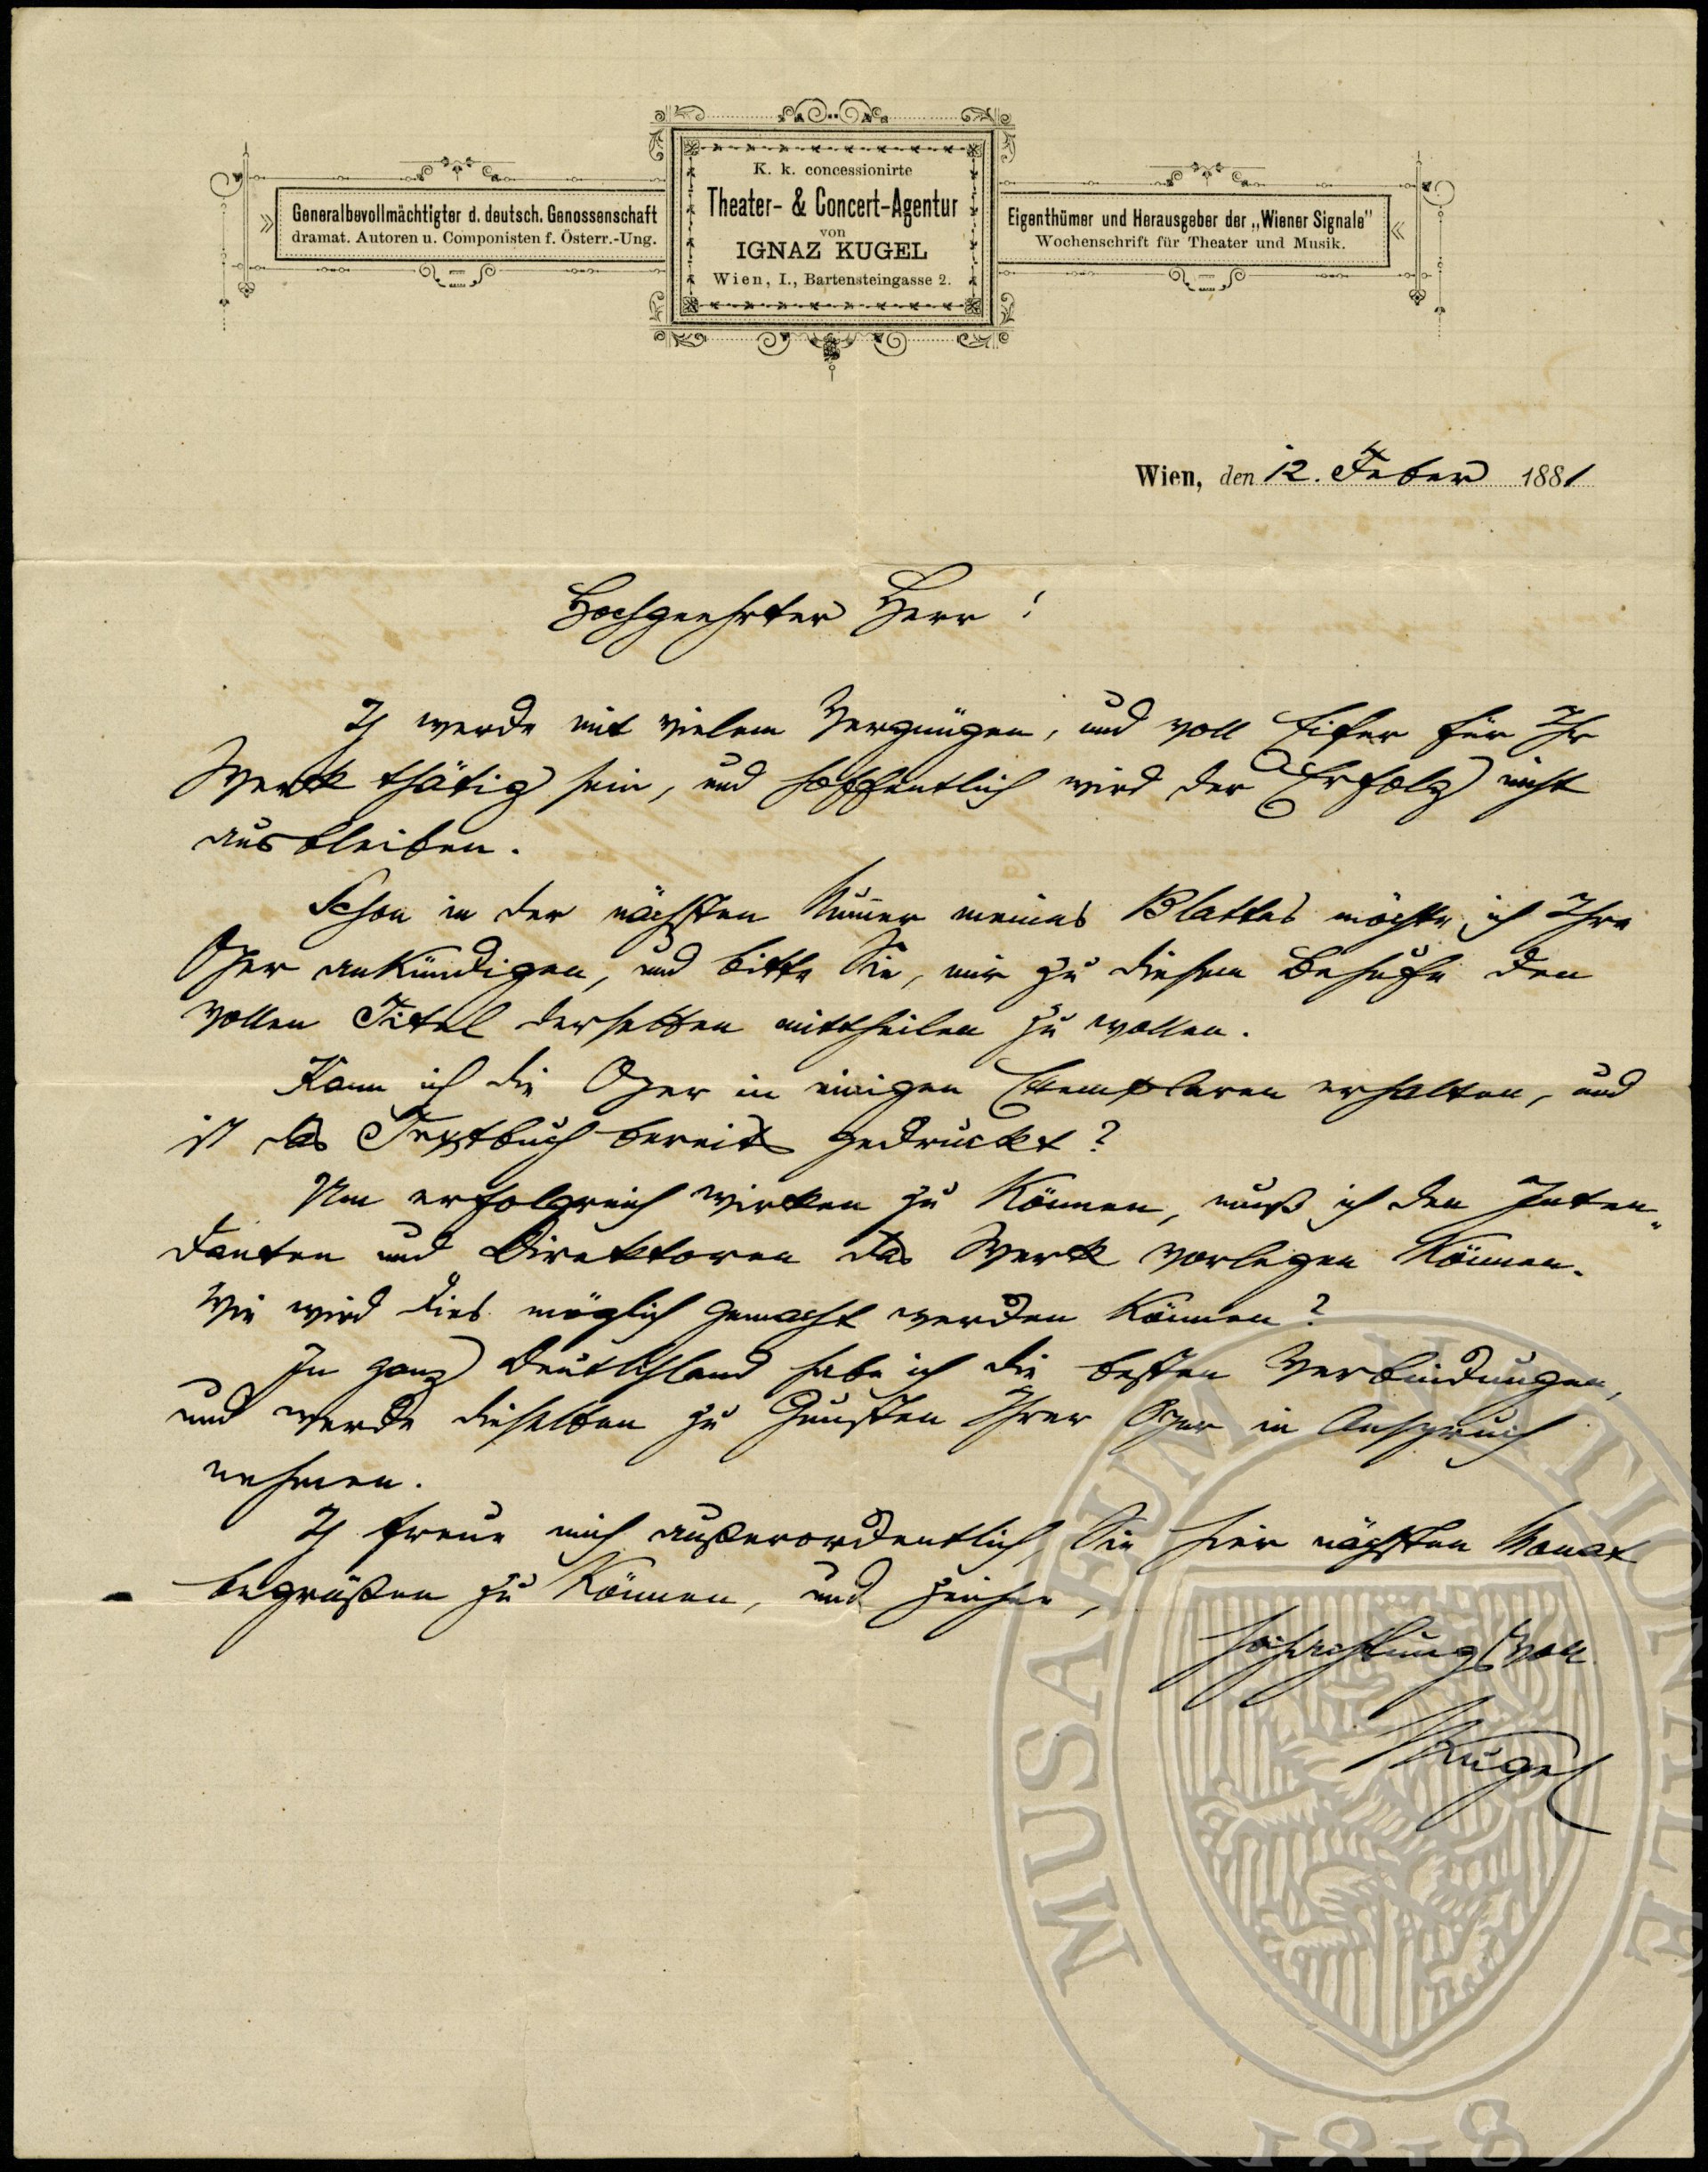 K. k. concessionirte
Theater- & Concert-Agentur
von
IGNAZ KUGEL
Wien, I., Bartensteingasse 2.
Generalbevollmächtigter d. deutsch. Genossenschaft
dramat. Autoren u. Componisten f. Österr.-Ung.
Eigenthümer und Herausgeber der „Wiener Signale"
Wochenschrift für Theater und Musik.
Wien, den 12. Feber 1881
Hochgeehrter Herr!
Ich werde mit vielem Vergnügen, und voll Eifer für Ihr
Werk thätig sein, und hoffentlich wird der Erfolg nicht
ausbleiben.
Schon in der nächsten Num̄er meines Blattes möchte ich Ihre
Oper ankündigen, und bitte Sie, mir zu diesem Behufe den
vollen Titel derselben mittheilen zu wollen.
Kann ich die Oper in einigen Exemplaren erhalten, und
ist das Textbuch bereits gedruckt?
Um erfolgreich wirken zu können, muß ich den Inten„
danten und Direktoren das Werk vorlegen können.
Wie wird dies möglich gemacht werden können?
In ganz Deutschland habe ich die besten Verbindungen,
und werde dieselben zu Gunsten Ihrer Oper in Anspruch
nehmen.
Ich freue mich außerordentlich, Sie hier nächsten Monat
begrüßen zu können, und zeichne,
hochachtungsvoll
Kugel
MUSAEUM NATIONALE
1818